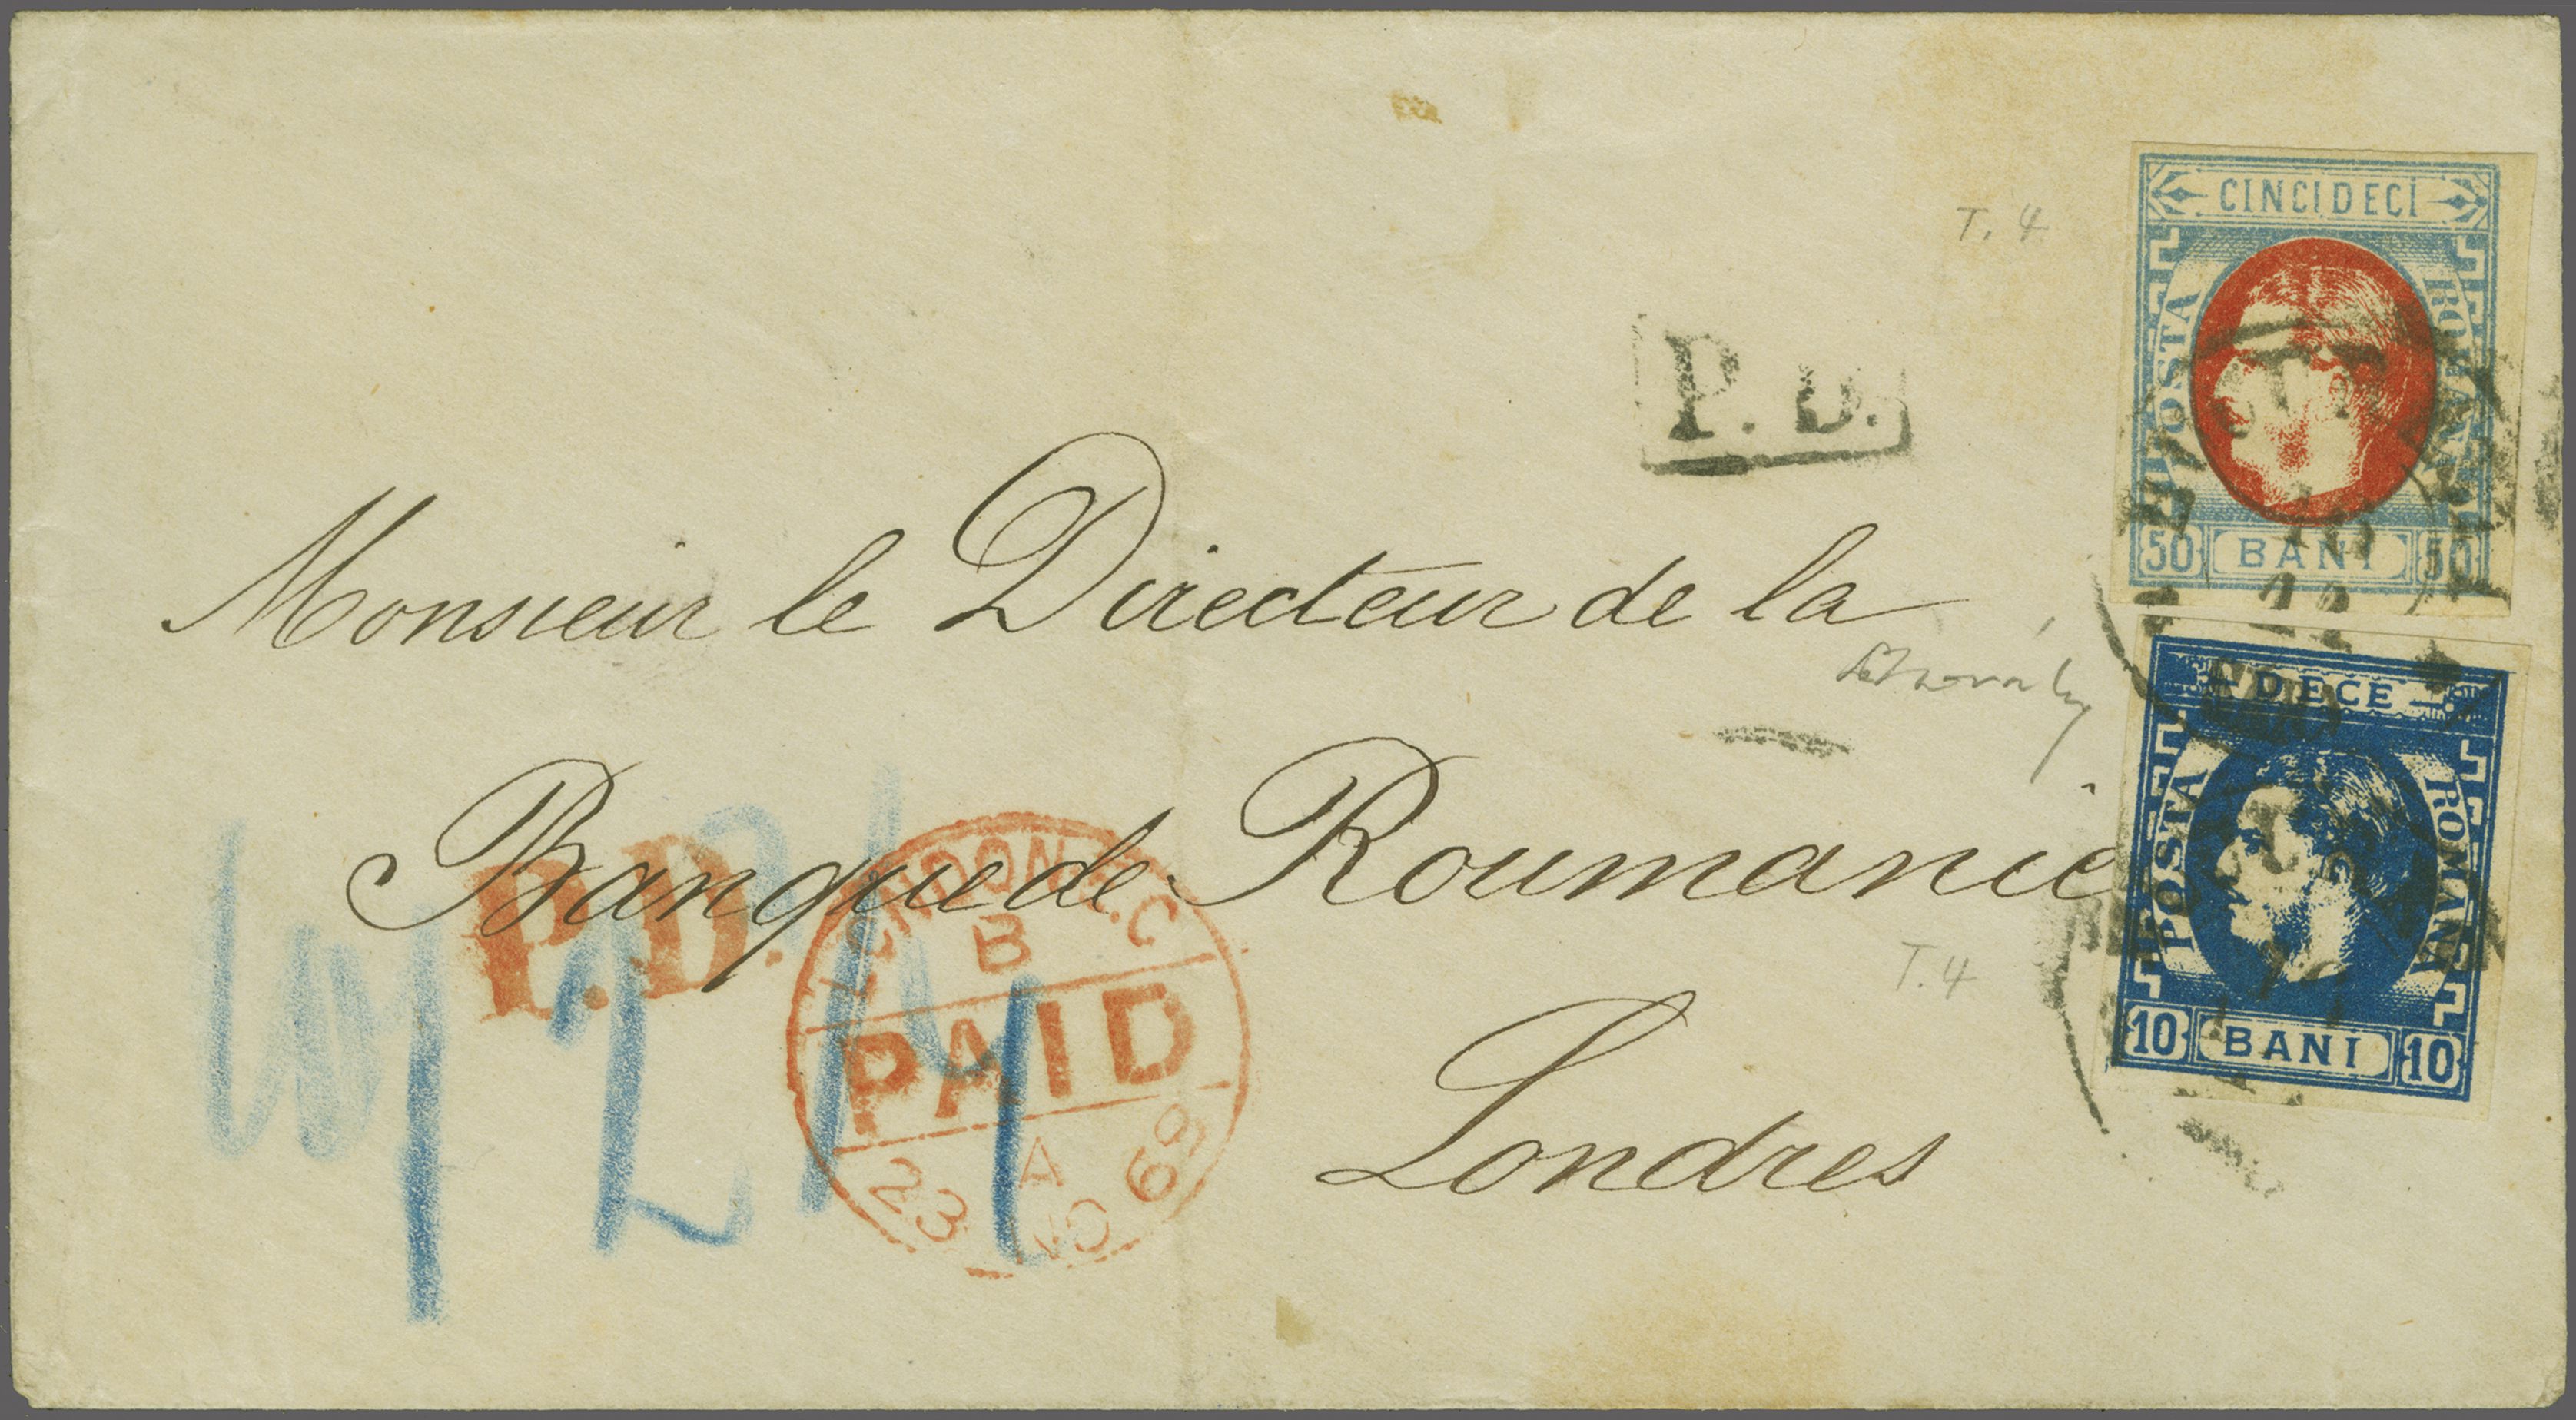 CINCIDECI
POSTA
ROMANA
50 BANI 50
T. 4
P. D.
Monsieur le Directeur de la
Banque de Roumanie
Londres
DECE
POSTA
ROMANA
10 BANI 10
T. 4
P.D.
LONDON E.C
B
PAID
A
23 NO 69